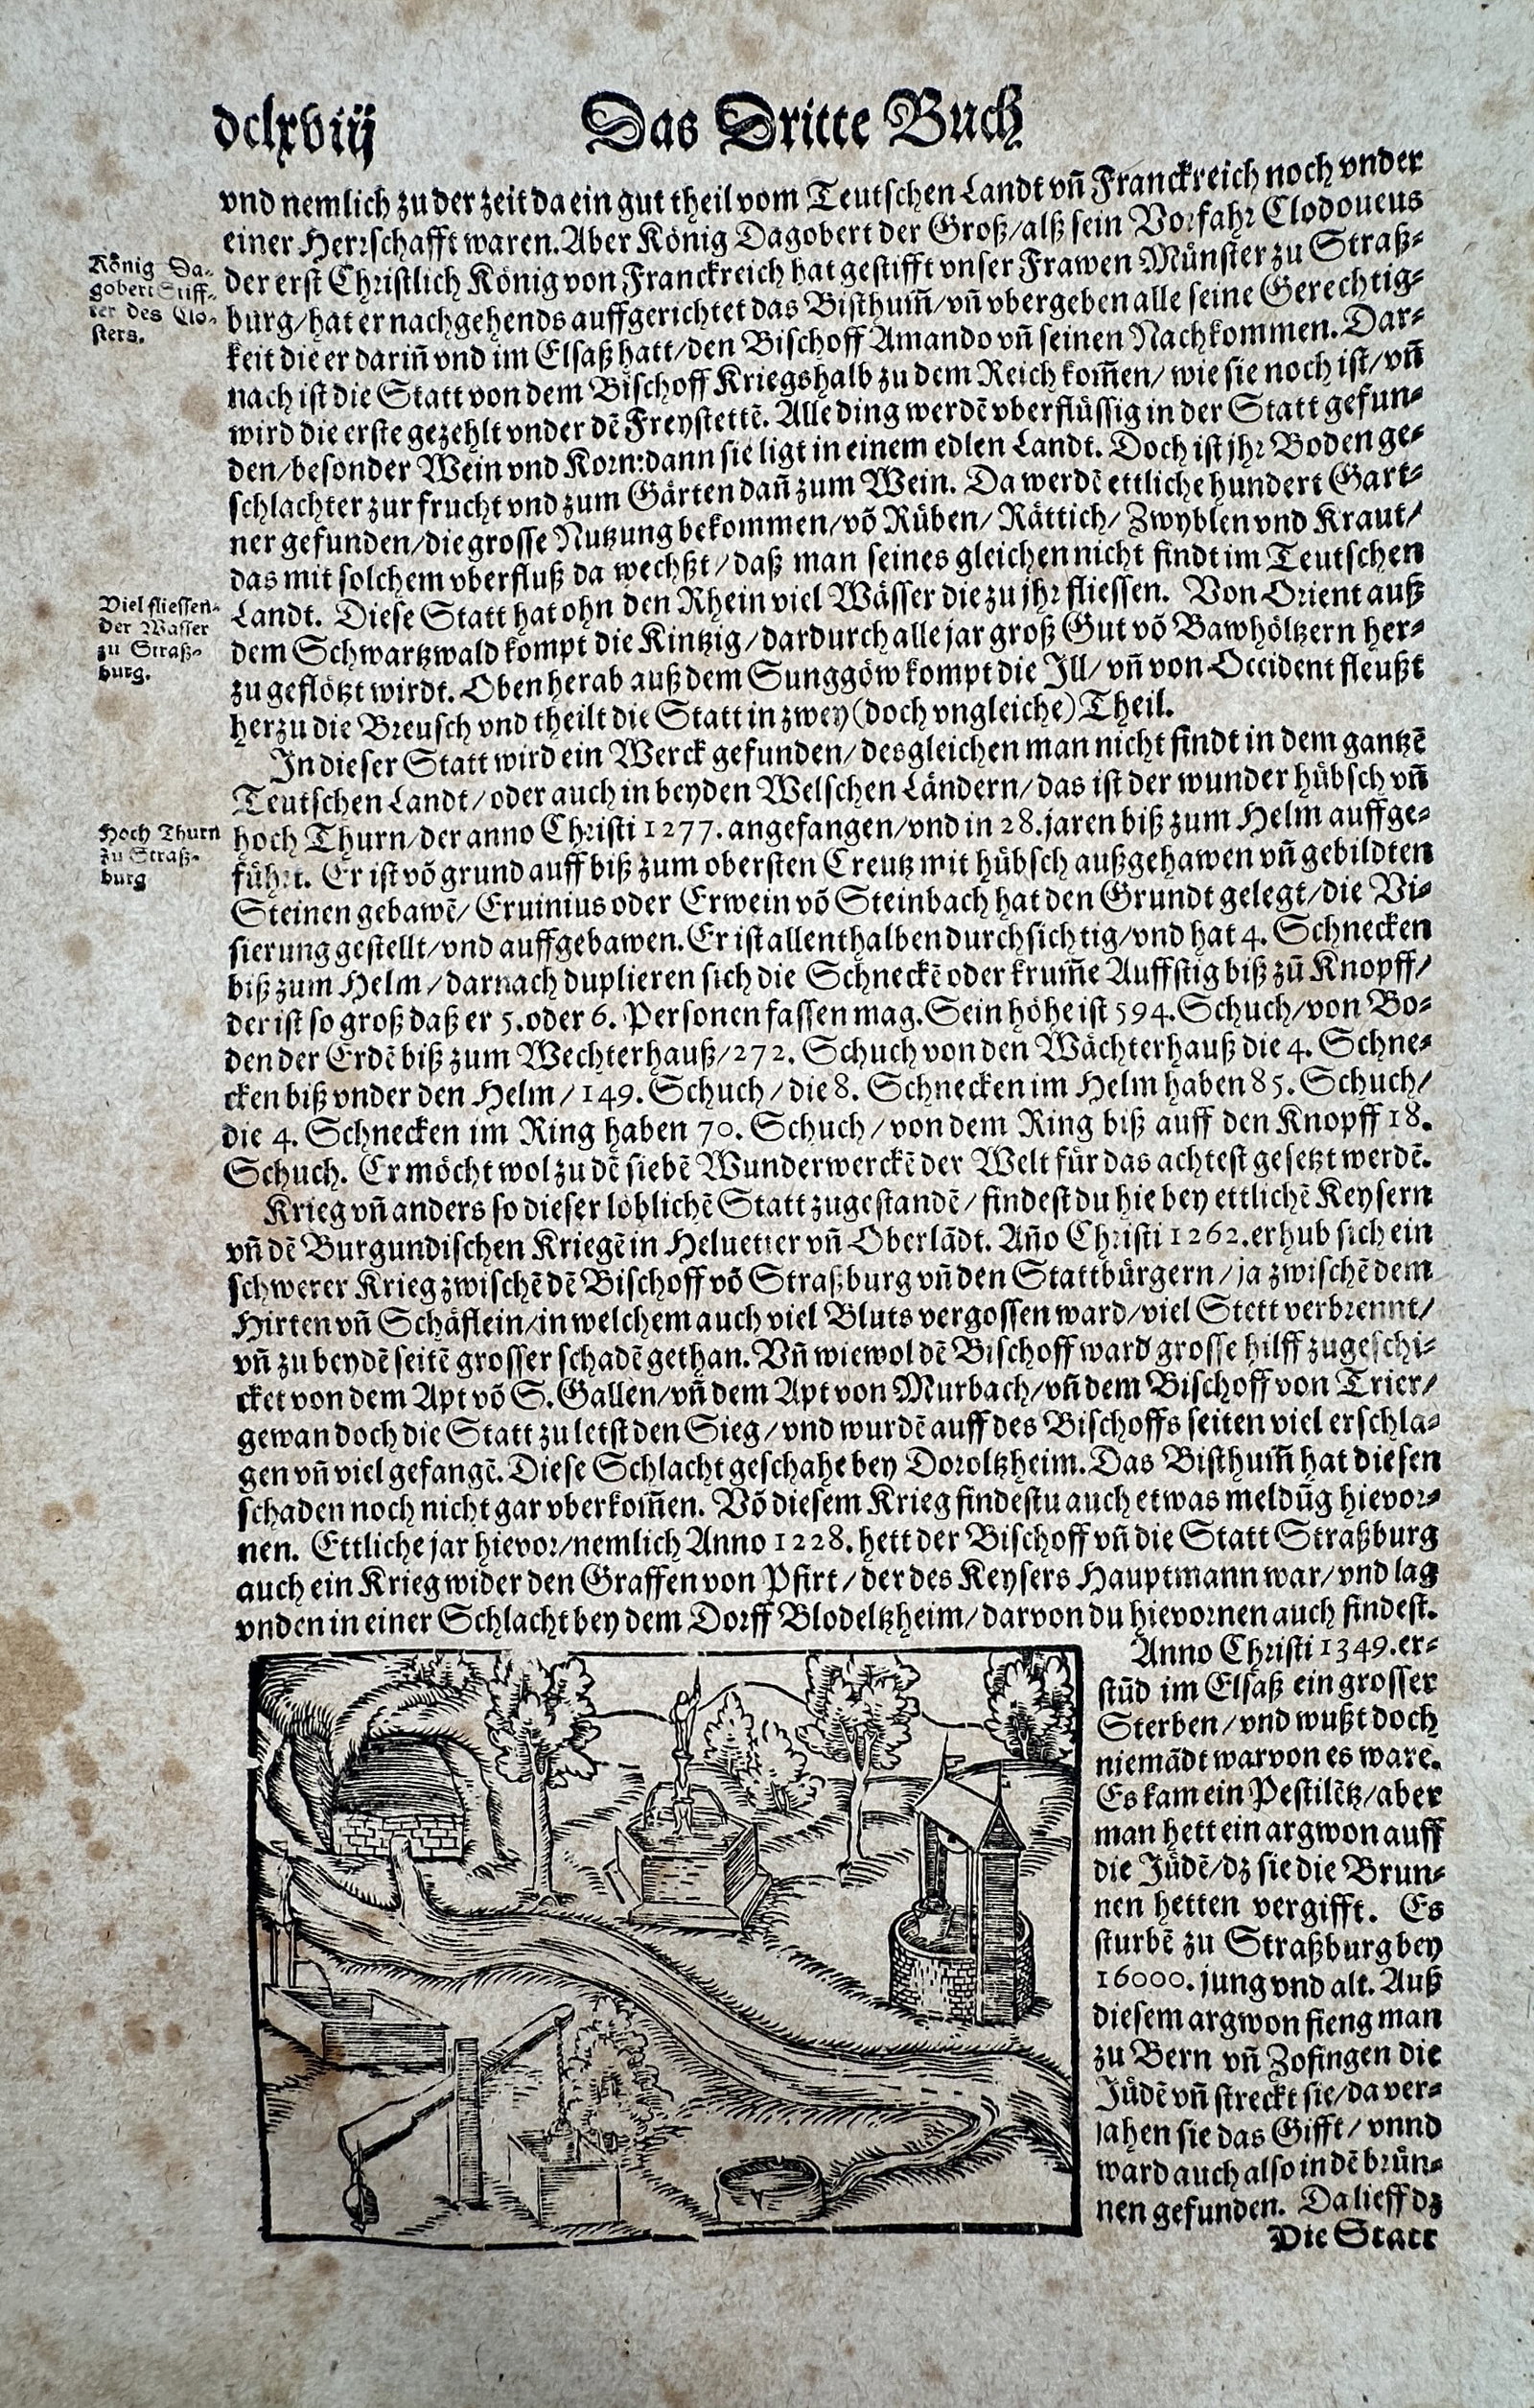 dclxviij
Das Dritte Buch
vnd nemlich zu der zeit da ein gut theil vom Teutschen Landt vñ Franckreich noch vnder
einer Herrschafft waren. Aber König Dagobert der Groß/ alß sein Vorfahr Clodoueus
König Da-
gobert Stiff-
ter des Clo-
sters.
der erst Christlich König von Franckreich hat gestifft vnser Frawen Münster zu Straß-
burg/ hat er nachgehends auffgerichtet das Bisthum̃/ vñ vbergeben alle seine Gerechtig-
keit die er dariñ vnd im Elsaß hatt/ den Bischoff Amando vñ seinen Nachkommen. Dar-
nach ist die Statt von dem Bischoff Kriegshalb zu dem Reich kom̃en/ wie sie noch ist/ vñ
wird die erste gezehlt vnder dẽ Freystettẽ. Alle ding werdẽ vberflüssig in der Statt gefun-
den/ besonder Wein vnd Korn: dann sie ligt in einem edlen Landt. Doch ist jhr Boden ge-
schlachter zur frucht vnd zum Gärten dañ zum Wein. Da werdẽ ettliche hundert Gart-
ner gefunden/ die grosse Nutzung bekommen/ võ Rüben/ Rättich/ Zwyblen vnd Kraut/
das mit solchem vberfluß da wechßt/ daß man seines gleichen nicht findt im Teutschen
Viel fliessen-
der Wasser
zu Straß-
burg.
Landt. Diese Statt hat ohn den Rhein viel Wässer die zu jhr fliessen. Von Orient auß
dem Schwartzwald kompt die Kintzig/ dardurch alle jar groß Gut võ Bawhöltzern her-
zu geflötzt wirdt. Oben herab auß dem Sunggöw kompt die Ill/ vñ von Occident fleußt
herzu die Breusch vnd theilt die Statt in zwey (doch vngleiche) Theil.
In dieser Statt wird ein Werck gefunden/ desgleichen man nicht findt in dem gantzẽ
Teutschen Landt/ oder auch in beyden Welschen Ländern/ das ist der wunder hübsch vñ
Hoch Thurn
zu Straß-
burg
hoch Thurn/ der anno Christi 1277. angefangen/ vnd in 28. jaren biß zum Helm auffge-
führt. Er ist võ grund auff biß zum obersten Creutz mit hübsch außgehawen vñ gebildten
Steinen gebawẽ/ Eruinius oder Erwein võ Steinbach hat den Grundt gelegt/ die Vi-
sierung gestellt/ vnd auffgebawen. Er ist allenthalben durchsichtig/ vnd hat 4. Schnecken
biß zum Helm/ darnach duplieren sich die Schneckẽ oder krum̃e Auffstig biß zũ Knopff/
der ist so groß daß er 5. oder 6. Personen fassen mag. Sein höhe ist 594. Schuch/ von Bo-
den der Erdẽ biß zum Wechterhauß/ 272. Schuch von den Wächterhauß die 4. Schne-
cken biß vnder den Helm/ 149. Schuch/ die 8. Schnecken im Helm haben 85. Schuch/
die 4. Schnecken im Ring haben 70. Schuch/ von dem Ring biß auff den Knopff 18.
Schuch. Er möcht wol zu dẽ siebẽ Wunderwerckẽ der Welt für das achtest gesetzt werdẽ.
Krieg vñ anders so dieser löblichẽ Statt zugestandẽ/ findest du hie bey ettlichẽ Keysern
vñ dẽ Burgundischen Kriegẽ in Heluetier vñ Oberlãdt. Año Christi 1262. erhub sich ein
schwerer Krieg zwischẽ dẽ Bischoff võ Straßburg vñ den Stattbürgern/ ja zwischẽ dem
Hirten vñ Schäflein/ in welchem auch viel Bluts vergossen ward/ viel Stett verbrennt/
vñ zu beydẽ seitẽ grosser schadẽ gethan. Vñ wiewol dẽ Bischoff ward grosse hilff zugeschi-
cket von dem Apt võ S. Gallen/ vñ dem Apt von Murbach/ vñ dem Bischoff von Trier/
gewan doch die Statt zu letst den Sieg/ vnd wurdẽ auff des Bischoffs seiten viel erschla-
gen vñ viel gefangẽ. Diese Schlacht geschahe bey Doroltzheim. Das Bisthum̃ hat diesen
schaden noch nicht gar vberkom̃en. Võ diesem Krieg findestu auch etwas meldũg hievor-
nen. Ettliche jar hievor/ nemlich Anno 1228. hett der Bischoff vñ die Statt Straßburg
auch ein Krieg wider den Graffen von Pfirt/ der des Keysers Hauptmann war/ vnd lag
vnden in einer Schlacht bey dem Dorff Blodeltzheim/ darvon du hievornen auch findest.
Anno Christi 1349. er-
stũd im Elsaß ein grosser
Sterben/ vnd wußt doch
niemãdt warvon es ware.
Es kam ein Pestilẽtz/ aber
man hett ein argwon auff
die Jüdẽ/ dz sie die Brun-
nen hetten vergifft. Es
sturbẽ zu Straßburg bey
16000. jung vnd alt. Auß
diesem argwon fieng man
zu Bern vñ Zofingen die
Jüdẽ vñ streckt sie/ da ver-
jahen sie das Gifft/ vnnd
ward auch also in dẽ brün-
nen gefunden. Da lieff dz
Die Statt